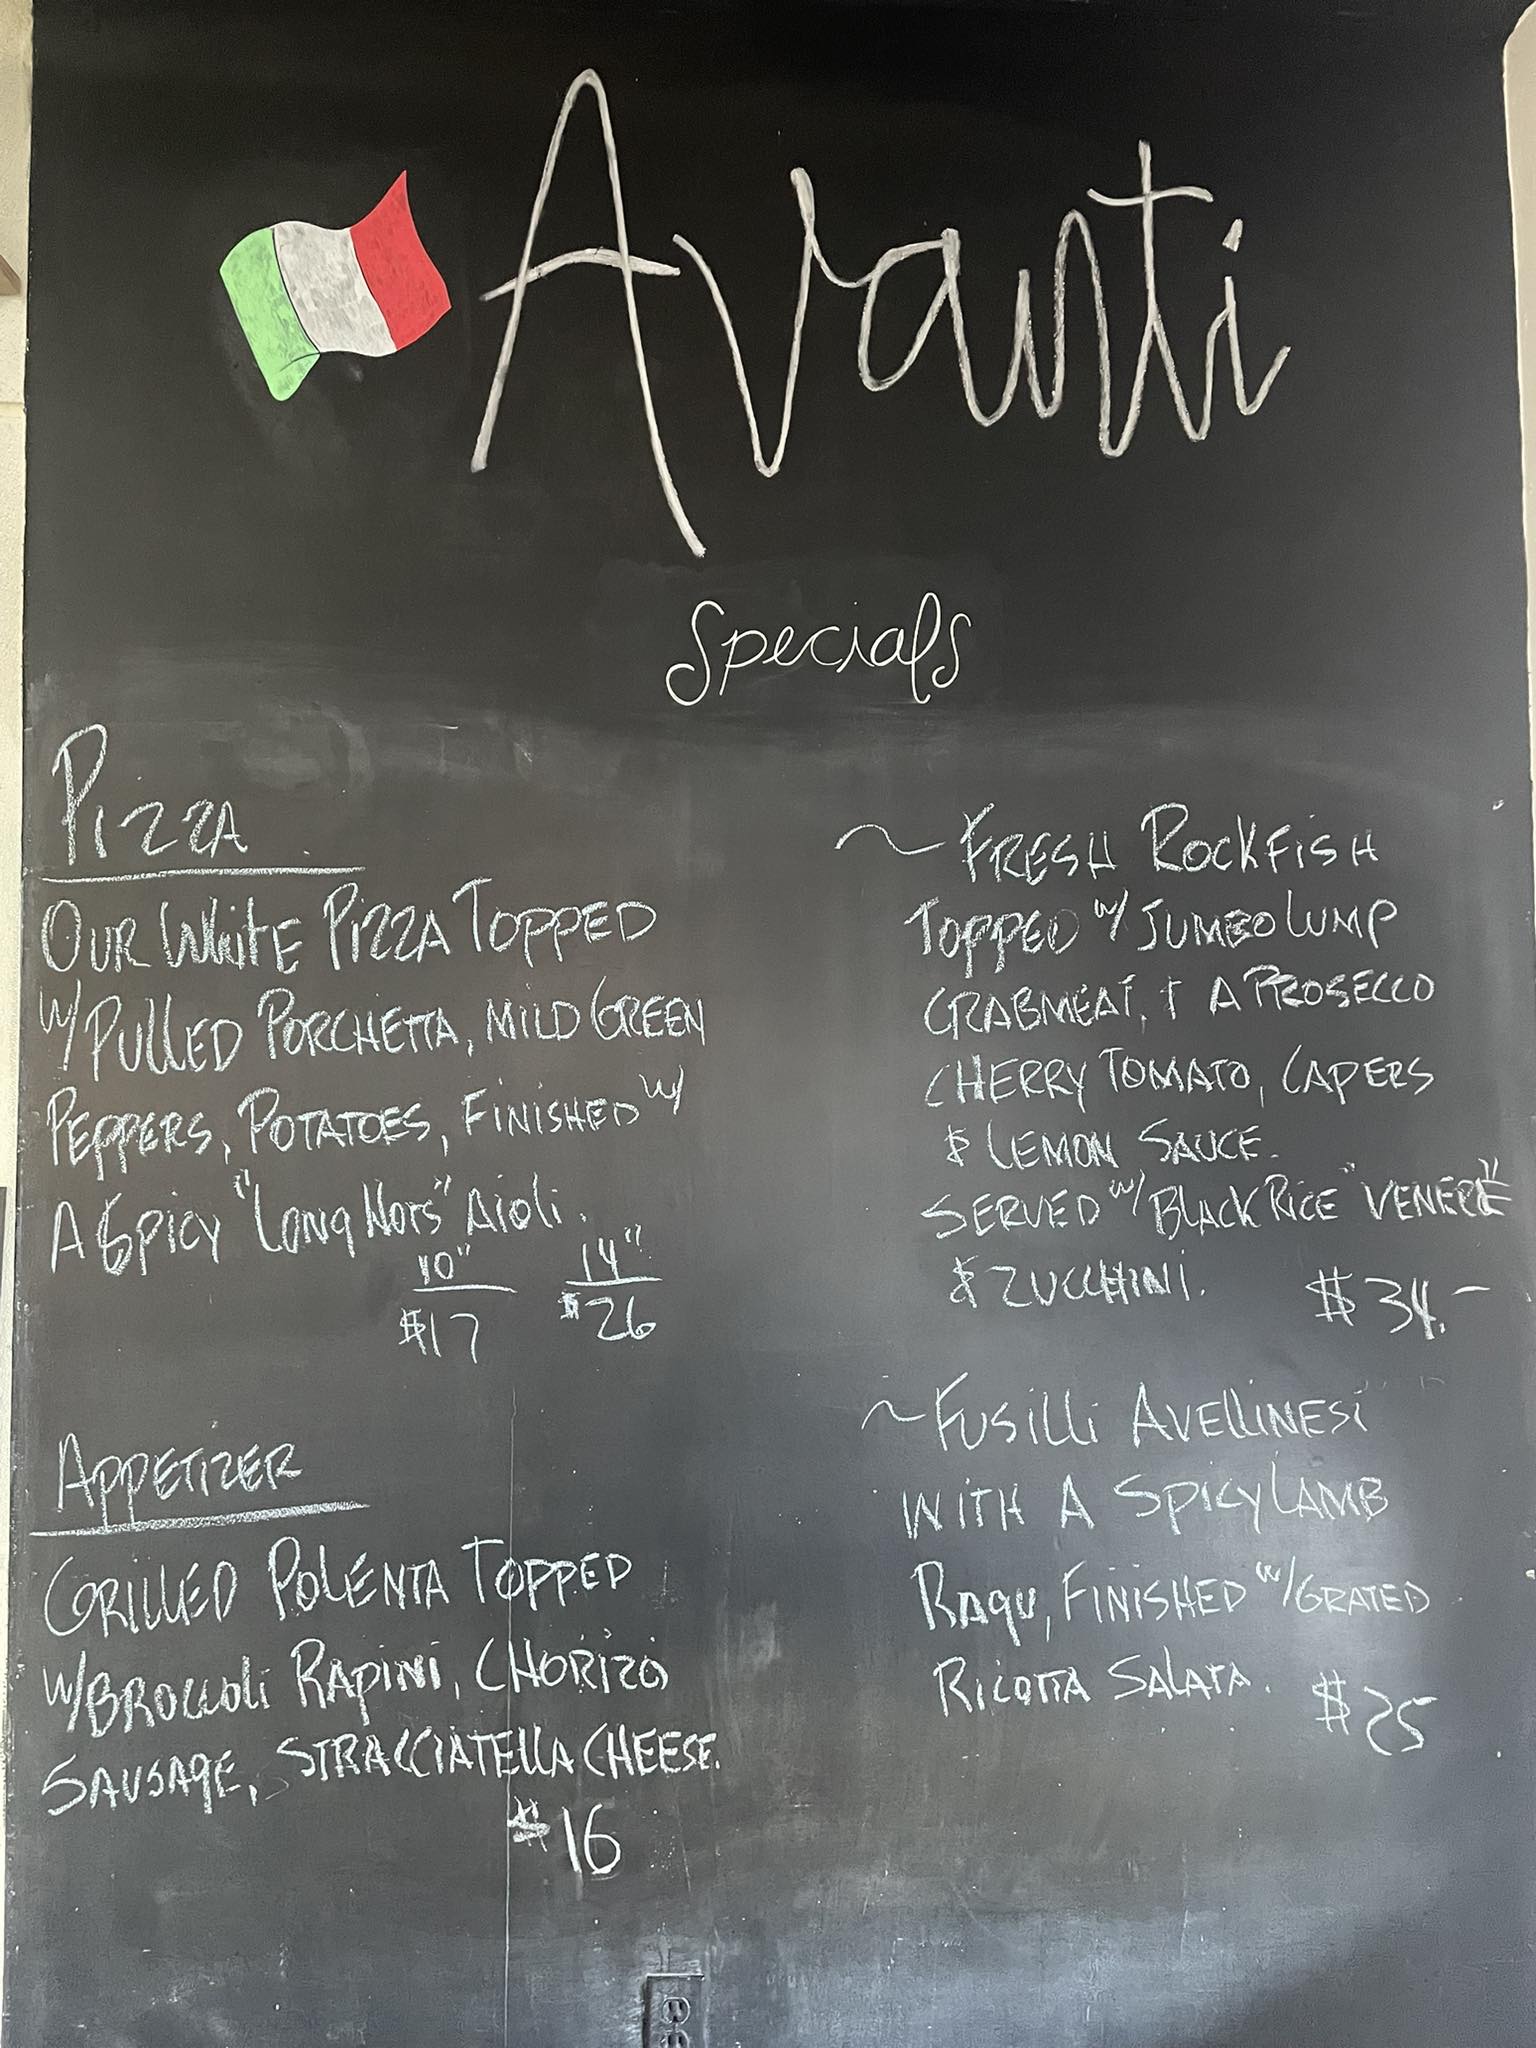 Avanti
Specials
PIZZA
OUR WHITE PIZZA TOPPED
W/PULLED PORCHETTA, MILD GREEN
PEPPERS, POTATOES, FINISHED W/
A SPICY "LONG HOTS" AIOLI.
10" 14"
$17 $26
APPETIZER
GRILLED POLENTA TOPPED
W/BROCCOLI RAPINI, CHORIZO
SAUSAGE, STRACCIATELLA CHEESE.
$16
~ FRESH ROCKFISH
TOPPED W/ JUMBO LUMP
CRABMEAT, + A PROSECCO
CHERRY TOMATO, CAPERS
& LEMON SAUCE.
SERVED W/ BLACK RICE "VENERE"
& ZUCCHINI. $34.-
~ FUSILLI AVELLINESI
WITH A SPICY LAMB
RAGU, FINISHED W/GRATED
RICOTTA SALATA. $25